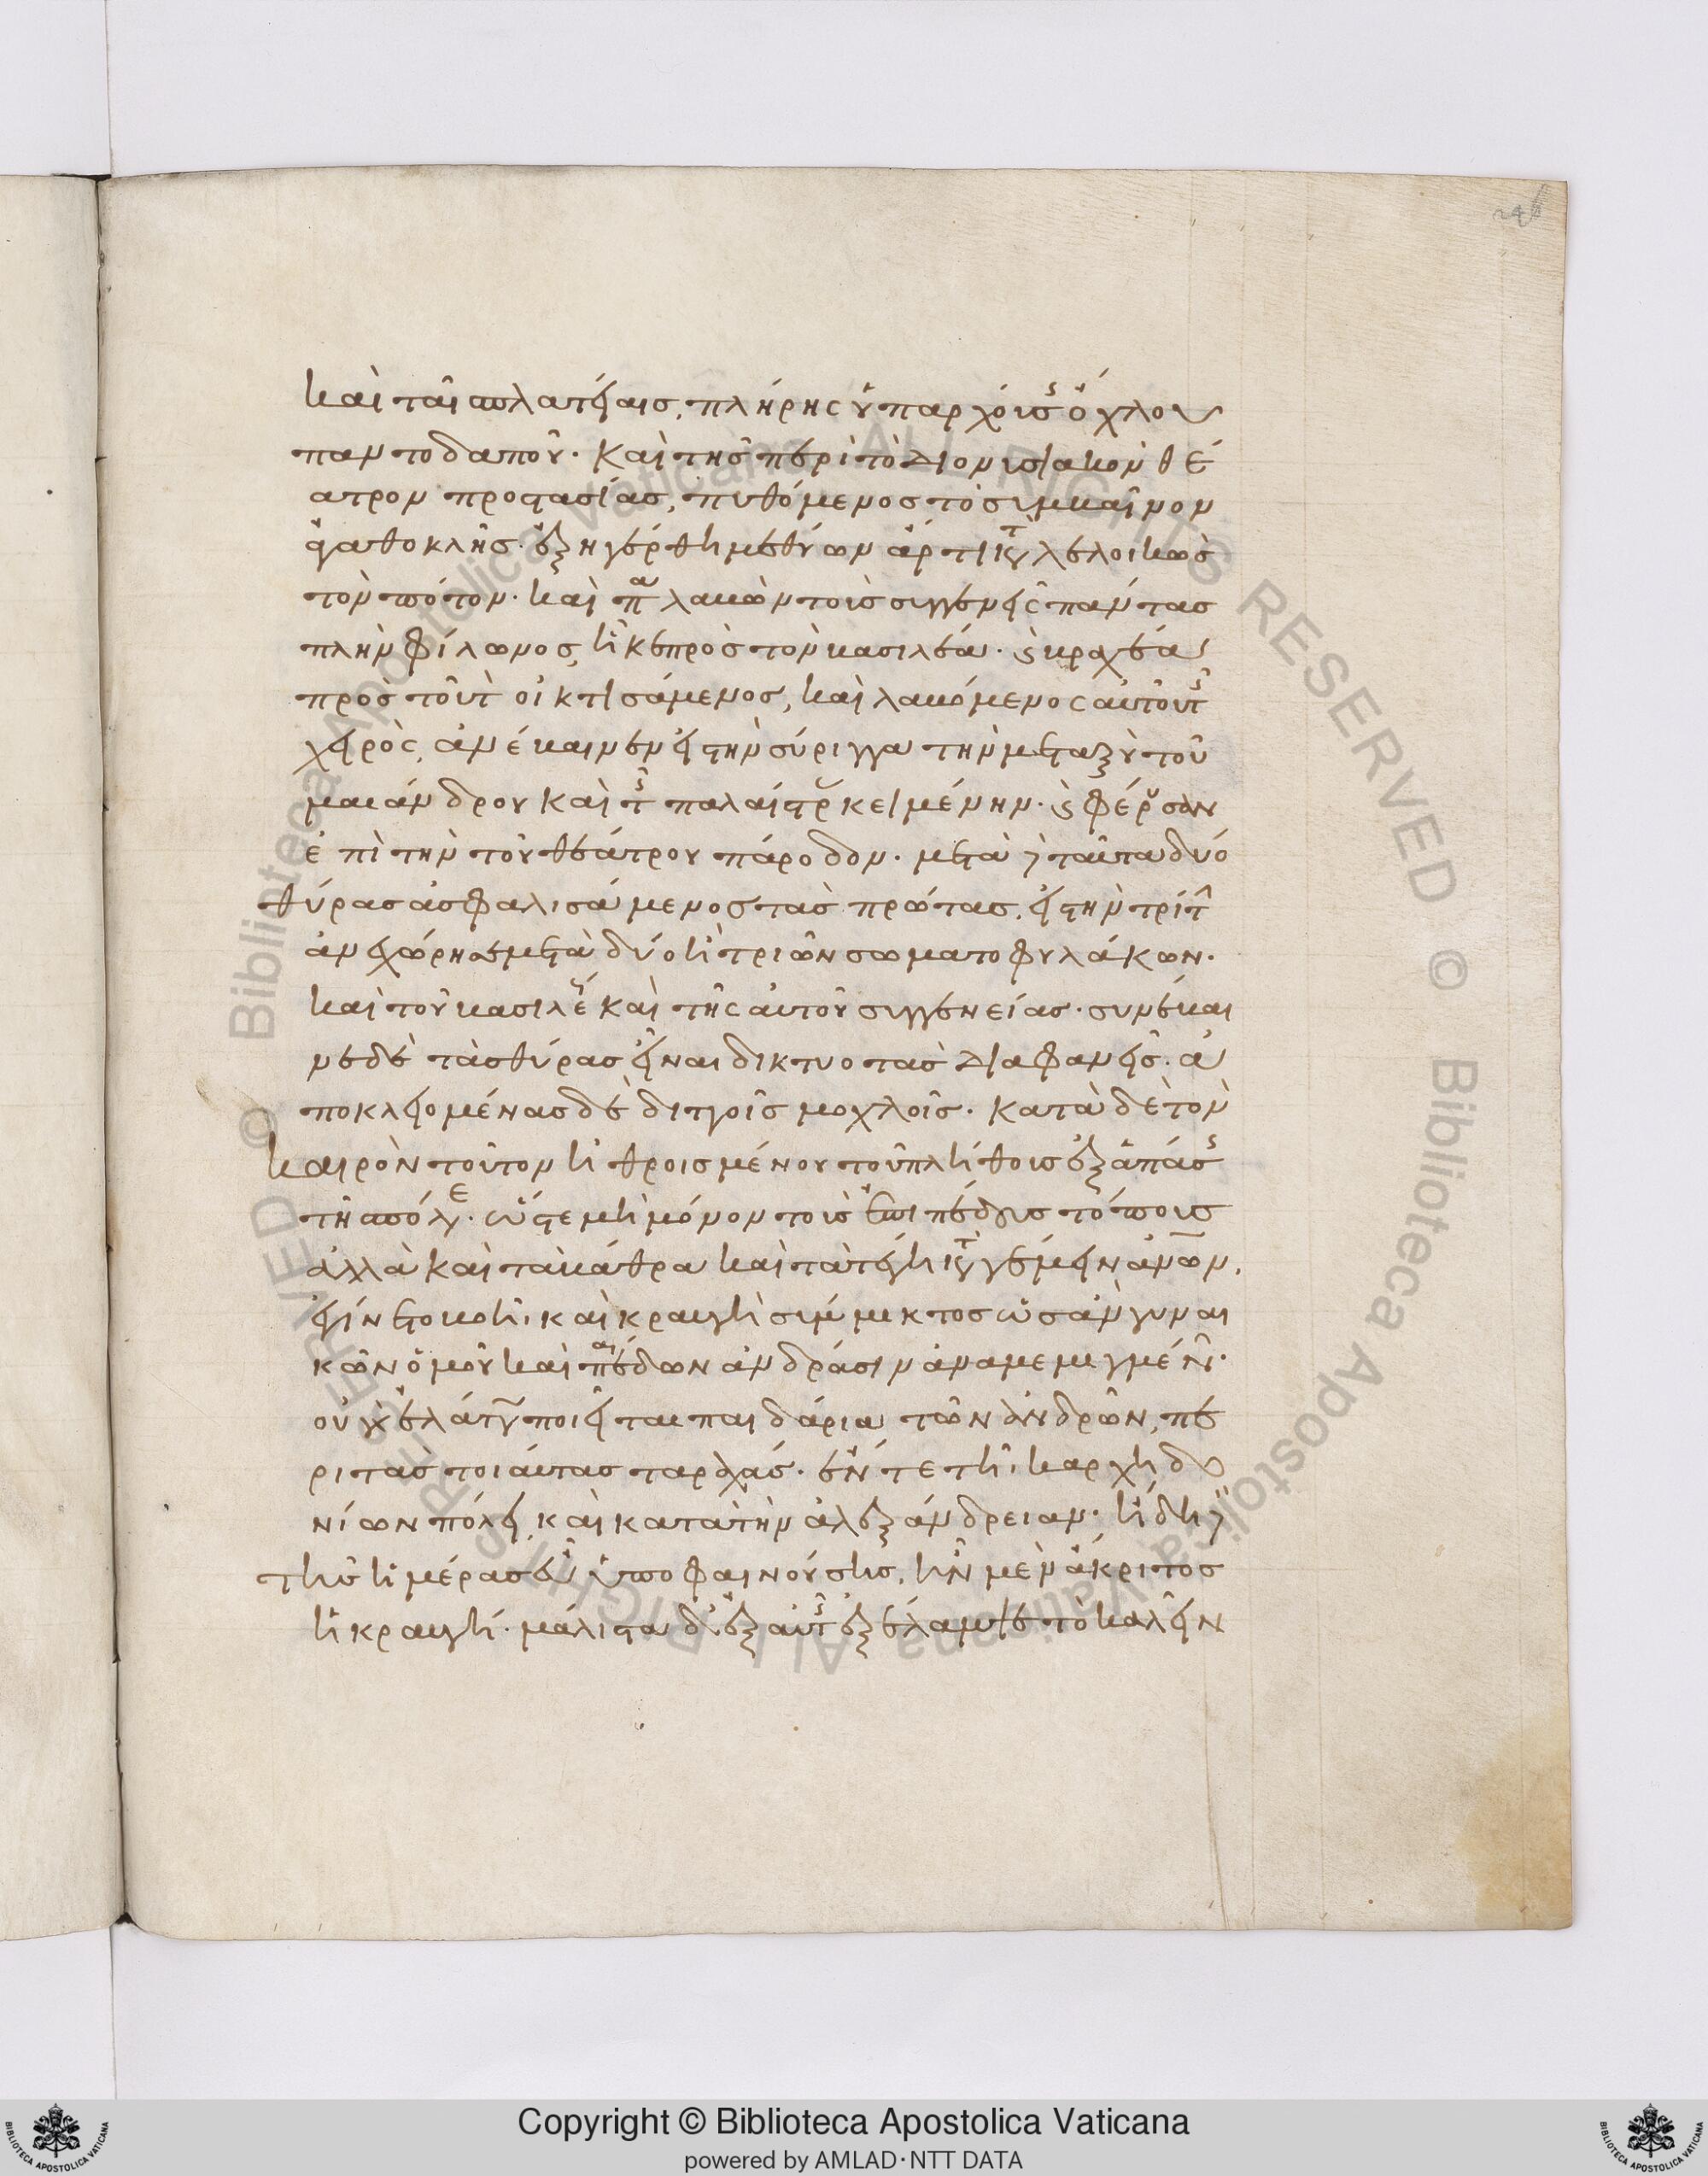 246
καὶ ταῖς πλατείαις, πλήρης ὑπάρχουσης ὄχλου
παντοδαποῦ. καὶ τῆς περὶ τὸ Διονυσιακὸν θέ
ατρον προστασίας, πυθόμενος τὸ συμβαῖνον
ἀγαθοκλῆς. ἐξηγέρθη μεθύων ἄρτι καταλελοικὼς
τὸν πότον. καὶ παραλαβὼν τοὺς συγγενεῖς πάντας
πλὴν φίλωνος, ἧκε πρὸς τὸν βασιλέα. καὶ βραχέα
πρὸς τοῦτον οἰκτισάμενος, καὶ λαβόμενος αὐτοῦ τῆς
χειρὸς, ἀνέβαινεν εἰς τὴν σύριγγα τὴν μεταξὺ τοῦ
μαιάνδρου καὶ τῆς παλαίστρας κειμένην. καὶ φέρουσαν
ἐπὶ τὴν τοῦ θεάτρου πάροδον. μετὰ δὲ ταῦτα δύο
θύρας ἀσφαλισάμενος τὰς πρώτας, εἰς τὴν τρίτην
ἀνεχώρησε μετὰ δύο ἢ τριῶν σωματοφυλάκων.
καὶ τοῦ βασιλέως καὶ τῆς αὐτοῦ συγγενείας. συνέβαι
νε δὲ τὰς θύρας εἶναι δικτυοτὰς διαφανεῖς. ἀ
ποκλειομένας δὲ διττοῖς μοχλοῖς. κατὰ δὲ τὸν
καιρὸν τοῦτον ἠθροισμένου τοῦ πλήθους ἐξ ἁπάσης
τῆς πόλεως. ὥστε μὴ μόνον τοὺς ἐπιπέδους τόπους
ἀλλὰ καὶ τὰ βάθρα καὶ τὰ τέγη καταγέμειν ἀνθρώπων,
ἐγίνετο βοὴ, καὶ κραυγὴ σύμμικτος ὡς ἂν γυναι
κῶν ὁμοῦ καὶ παίδων ἀνδράσιν ἀναμεμιγμένων.
οὐ γὰρ ἐλάττω ποιεῖ τὰ παιδάρια τῶν ἀνδρῶν, πε
ρὶ τὰς τοιαύτας ταραχάς. ἔν τε τῇ καρχηδο
νίων πόλει, καὶ κατὰ τὴν ἀλεξάνδρειαν. ἤδη δὲ
τῆς ἡμέρας ὑποφαινούσης, ἦν μὲν ἄκριτος
ἡ κραυγή. μάλιστα δ' ἐξ αὐτῆς ἐξέλαμψε τὸ καλεῖν
Copyright © Biblioteca Apostolica Vaticana
powered by AMLAD·NTT DATA